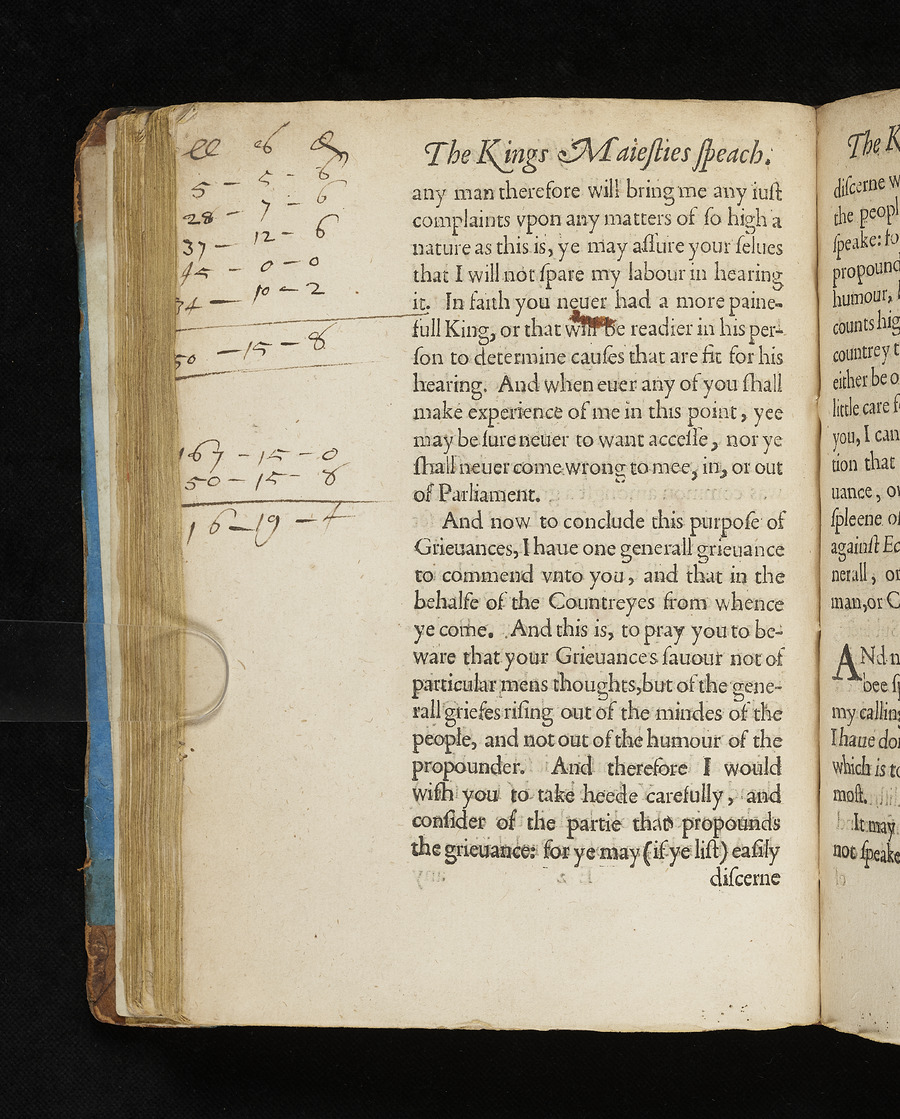 ll s d
5 - 5 - 8
28 - 7 - 6
37 - 12 - 6
45 - 0 - 0
34 - 10 - 2
50 - 15 - 8
167 - 15 - 0
50 - 15 - 8
16 - 19 - 4
The Kings Maieſties ſpeach.
any man therefore will bring me any iuſt
complaints vpon any matters of ſo high a
nature as this is, ye may aſſure your ſelues
that I will not ſpare my labour in hearing
it. In faith you neuer had a more paine-
full King, or that will be readier in his per-
ſon to determine cauſes that are fit for his
hearing. And when euer any of you ſhall
make experience of me in this point, yee
may be ſure neuer to want acceſſe, nor ye
ſhall neuer come wrong to mee, in, or out
of Parliament.
And now to conclude this purpoſe of
Grieuances, I haue one generall grieuance
to commend vnto you, and that in the
behalfe of the Countreyes from whence
ye come. And this is, to pray you to be-
ware that your Grieuances ſauour not of
particular mens thoughts, but of the gene-
rall griefes riſing out of the mindes of the
people, and not out of the humour of the
propounder. And therefore I would
wiſh you to take heede carefully, and
conſider of the partie that propounds
the grieuance: for ye may (if ye liſt) eaſily
diſcerne
The K
diſcerne w
the peopl
ſpeake: fo
propound
humour,
counts hig
countrey t
either be o
little care f
you, I can
tion that
uance, ow
ſpleene of
againſt Ec
nerall, or
man, or C
ANd n
bee ſp
my calling
I haue don
which is to
moſt.
It may
not ſpeake